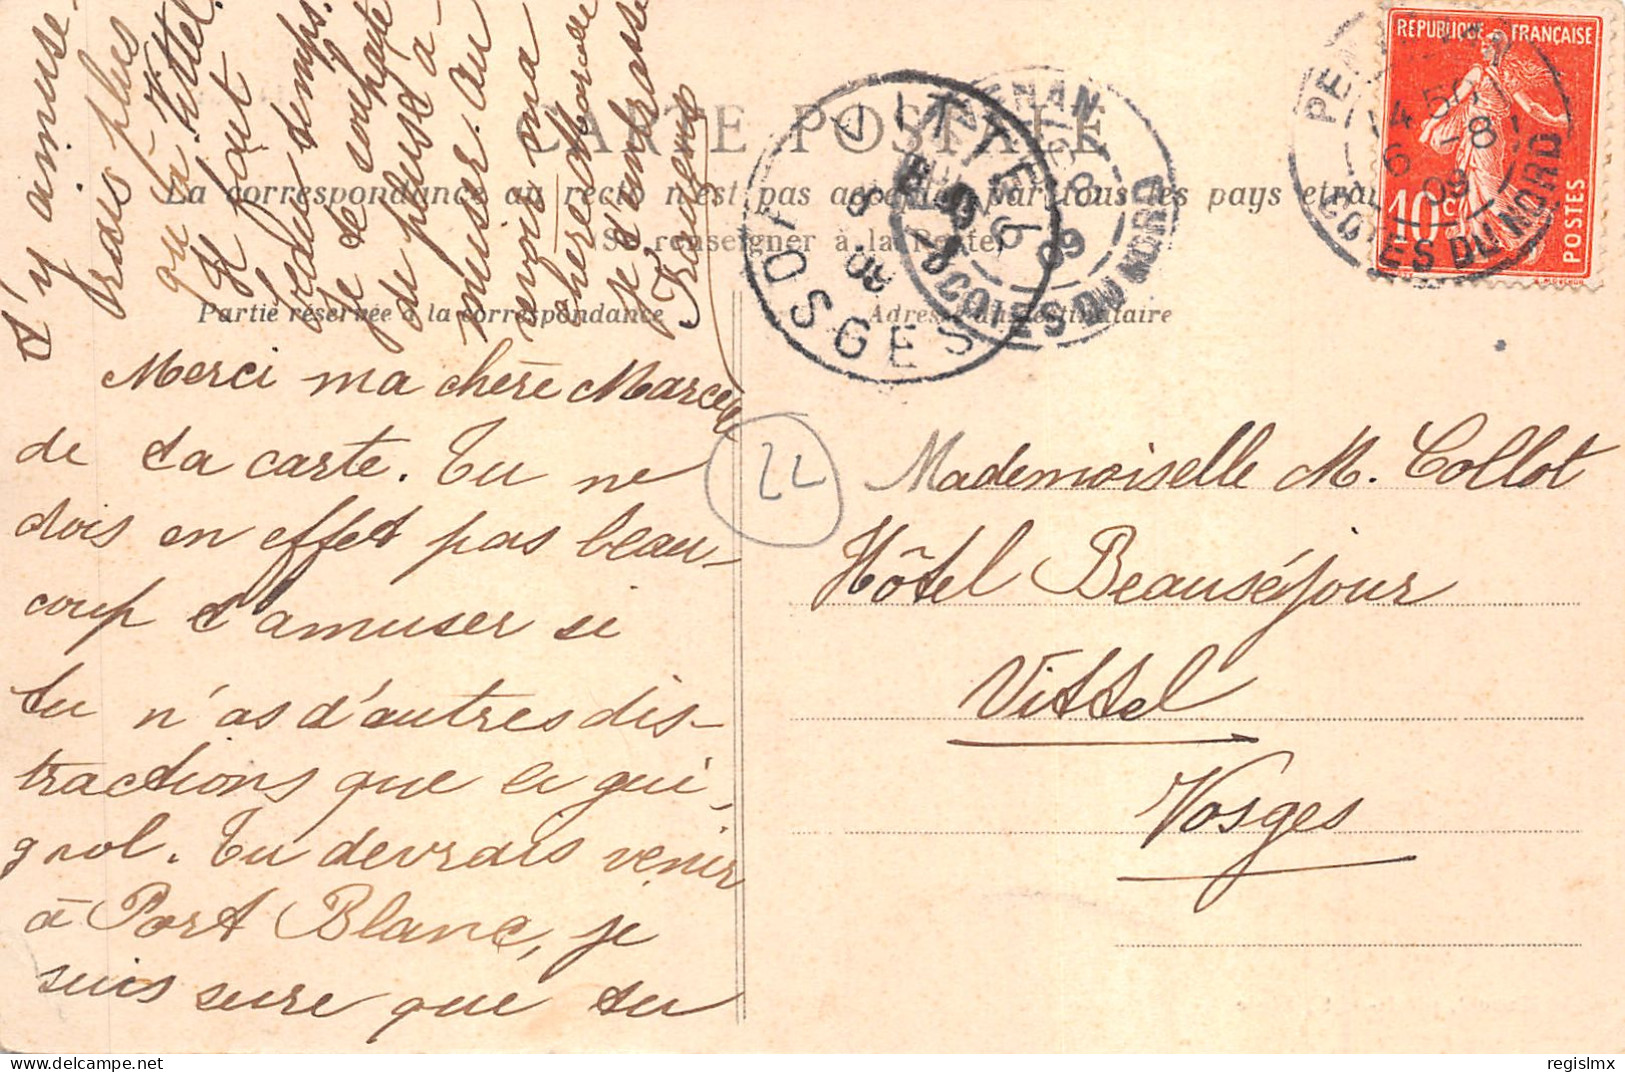 CARTE POSTALE
La correspondance au recto n'est pas acceptée par tous les pays étran
Se renseigner à la Poste
Partie réservée à la correspondance
Adresse du destinataire
Merci ma chère Marcelle
de ta carte. Tu ne
dois en effet pas beau-
coup t'amuser si
tu n'as d'autres dis-
tractions que le gui-
gnol. Tu devrais venir
à Port Blanc, je
suis sure que tu
t'y amuse-
rais plus
qu'à Vittel.
Il fait
beau temps.
Je te souhaite
de plus t'a-
muser. Au
revoir ma
chère Marcelle
je t'embrasse
22
Mademoiselle M. Collot
Hôtel Beauséjour
Vittel
Vosges
RÉPUBLIQUE FRANÇAISE
10c
POSTES
4 50
6 -8
09
COTES DU NORD
VITTEL
VOSGES
09
COTES DU NORD
09
delcampe.net
regislmx